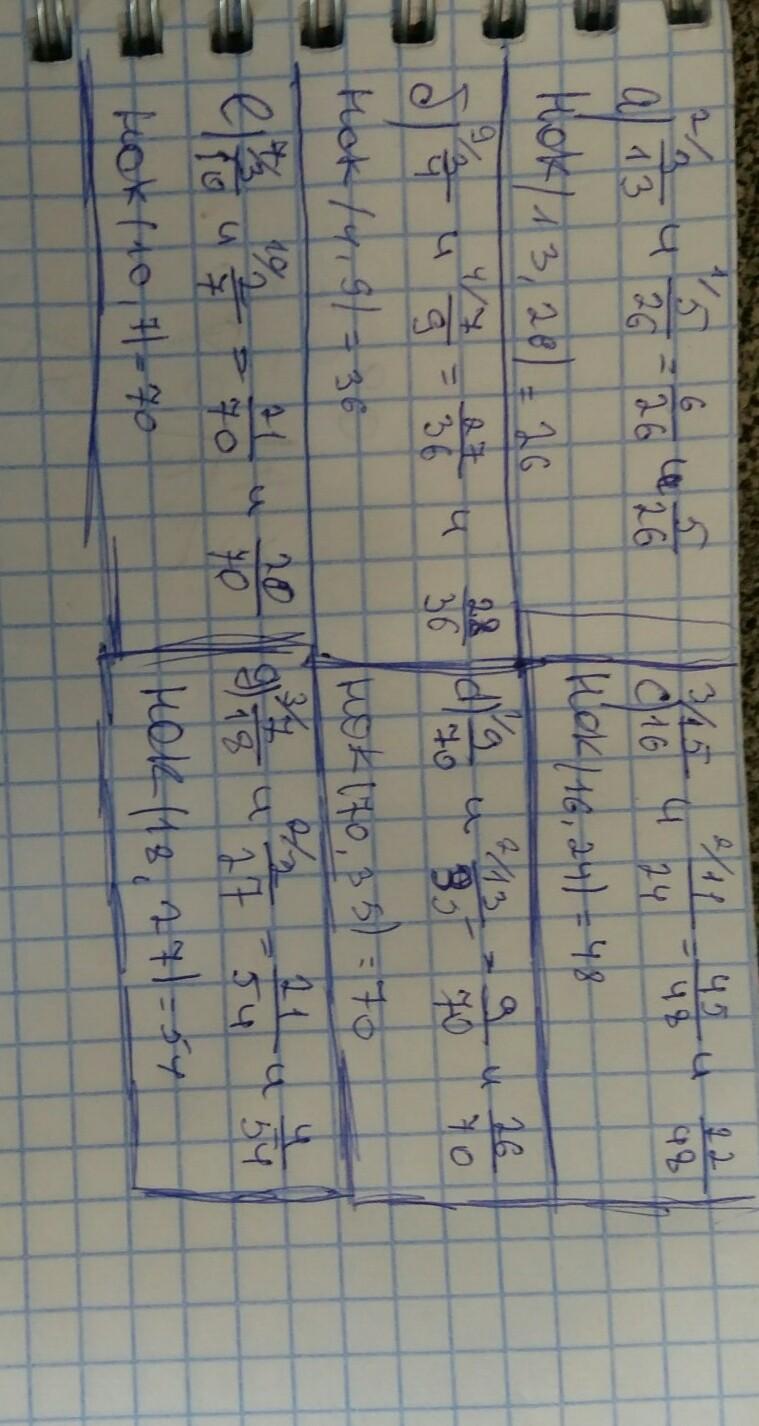 а) ²/3/13 и ¹/5/26 = 6/26 и 5/26
НОК (13, 28) = 26
б) ⁹/3/4 и ⁴/7/9 = 27/36 и 28/36
НОК (4, 9) = 36
е) ⁷/3/10 и ¹⁰/2/7 = 21/70 и 20/70
НОК (10, 7) = 70
с) ³/15/16 и ²/11/24 = 45/48 и 22/48
НОК (16, 24) = 48
d) ¹/9/70 и ²/13/35 = 9/70 и 26/70
НОК (70, 35) = 70
g) ³/7/18 и ²/2/27 = 21/54 и 4/54
НОК (18, 27) = 54